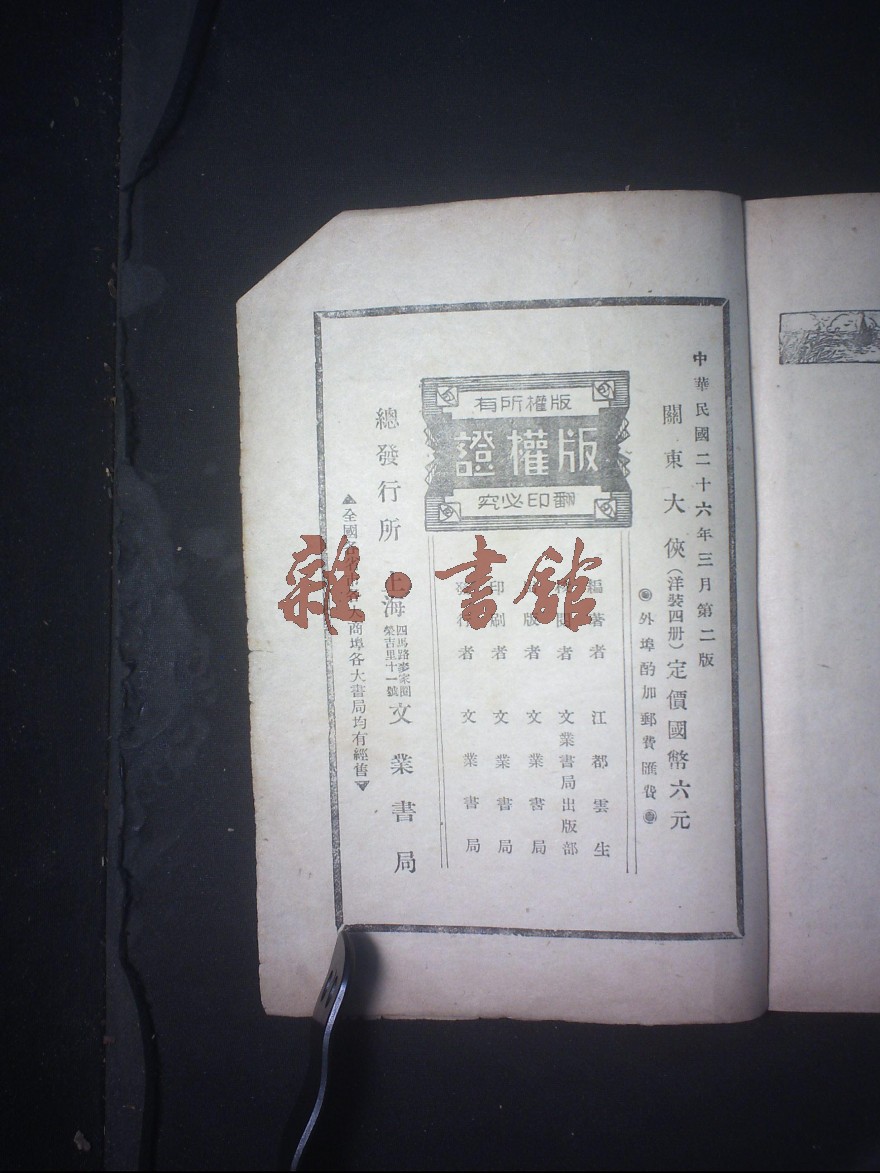 中華民國二十六年三月第二版
關東大俠（洋裝四册）定價國幣六元
外埠酌加郵費匯費
版權所有
版權證
翻印必究
編著者 江都雲生
校閱者 文業書局出版部
出版者 文業書局
印刷者 文業書局
發行者 文業書局
總發行所 上海四馬路麥家圈榮吉里十一號文業書局
▲全國各 大商埠各大書局均有經售▼
雜·書館